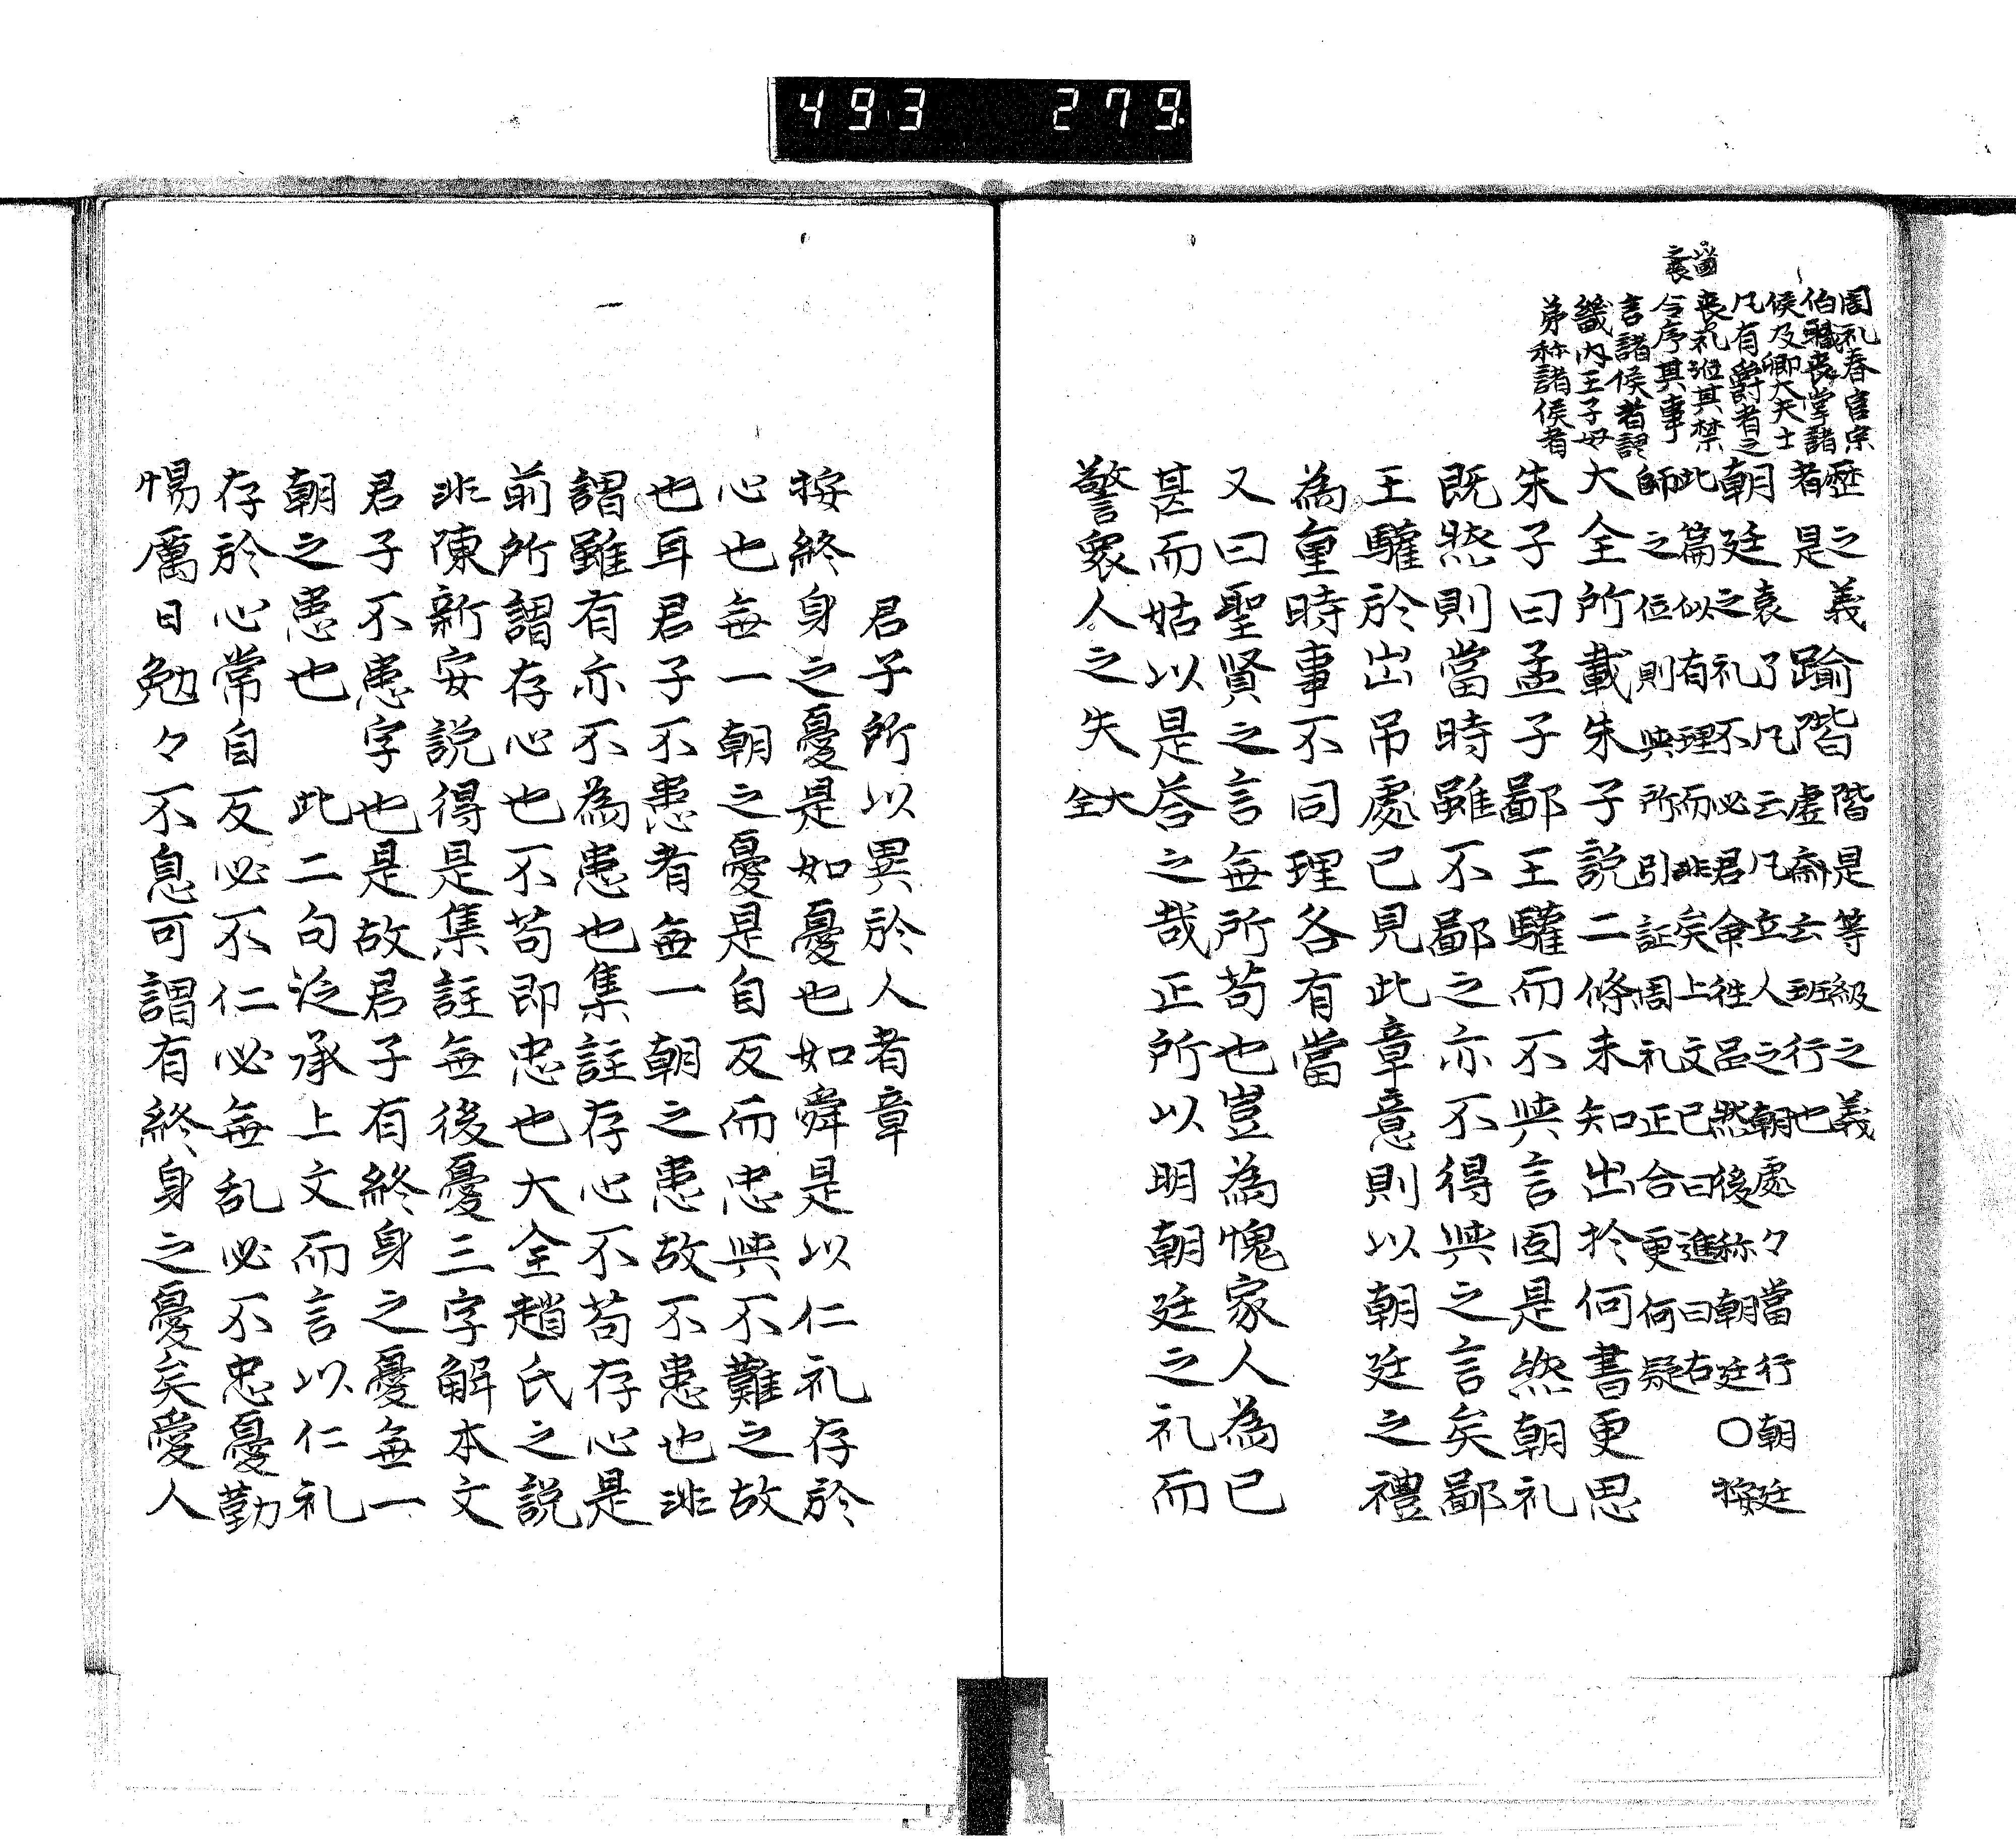 493 279
周礼春官宗
伯職喪掌諸
侯及卿大夫士
凡有爵者之
喪礼涖其禁
令序其事
國之喪
言諸侯者謂
畿内王子母
弟称諸侯者
歴之義 踰階 階是等級之義
者是 虚斎云班行也
朝廷 袁了凡云凡立人之朝處々當行朝廷
之礼不必君命往吊然後称朝廷〇按
此篇似有理而非矣上文已曰進曰右
師之位則與所引証周礼正合更何疑
大全所載朱子説二條未知出於何書更思
朱子曰孟子鄙王驩而不與言固是然朝礼
既然則當時雖不鄙之亦不得與之言矣鄙
王驩於出吊處已見此章意則以朝廷之禮
為重時事不同理各有當
又曰聖賢之言無所苟也豈為愧家人為已
甚而姑以是答之哉正所以明朝廷之礼而
警衆人之失 大全
君子所以異於人者章
按終身之憂是如憂也如舜是以仁礼存於
心也無一朝之憂是自反而忠與不難之故
也耳君子不患者無一朝之患故不患也非
謂雖有亦不為患也集註存心不苟存心是
前所謂存心也不苟即忠也大全趙氏之説
非陳新安説得是集註無後憂三字解本文
君子不患字也是故君子有終身之憂無一
朝之患也 此二句泛承上文而言以仁礼
存於心常自反必不仁必無乱必不忠憂勤
惕厲日勉々不息可謂有終身之憂矣愛人